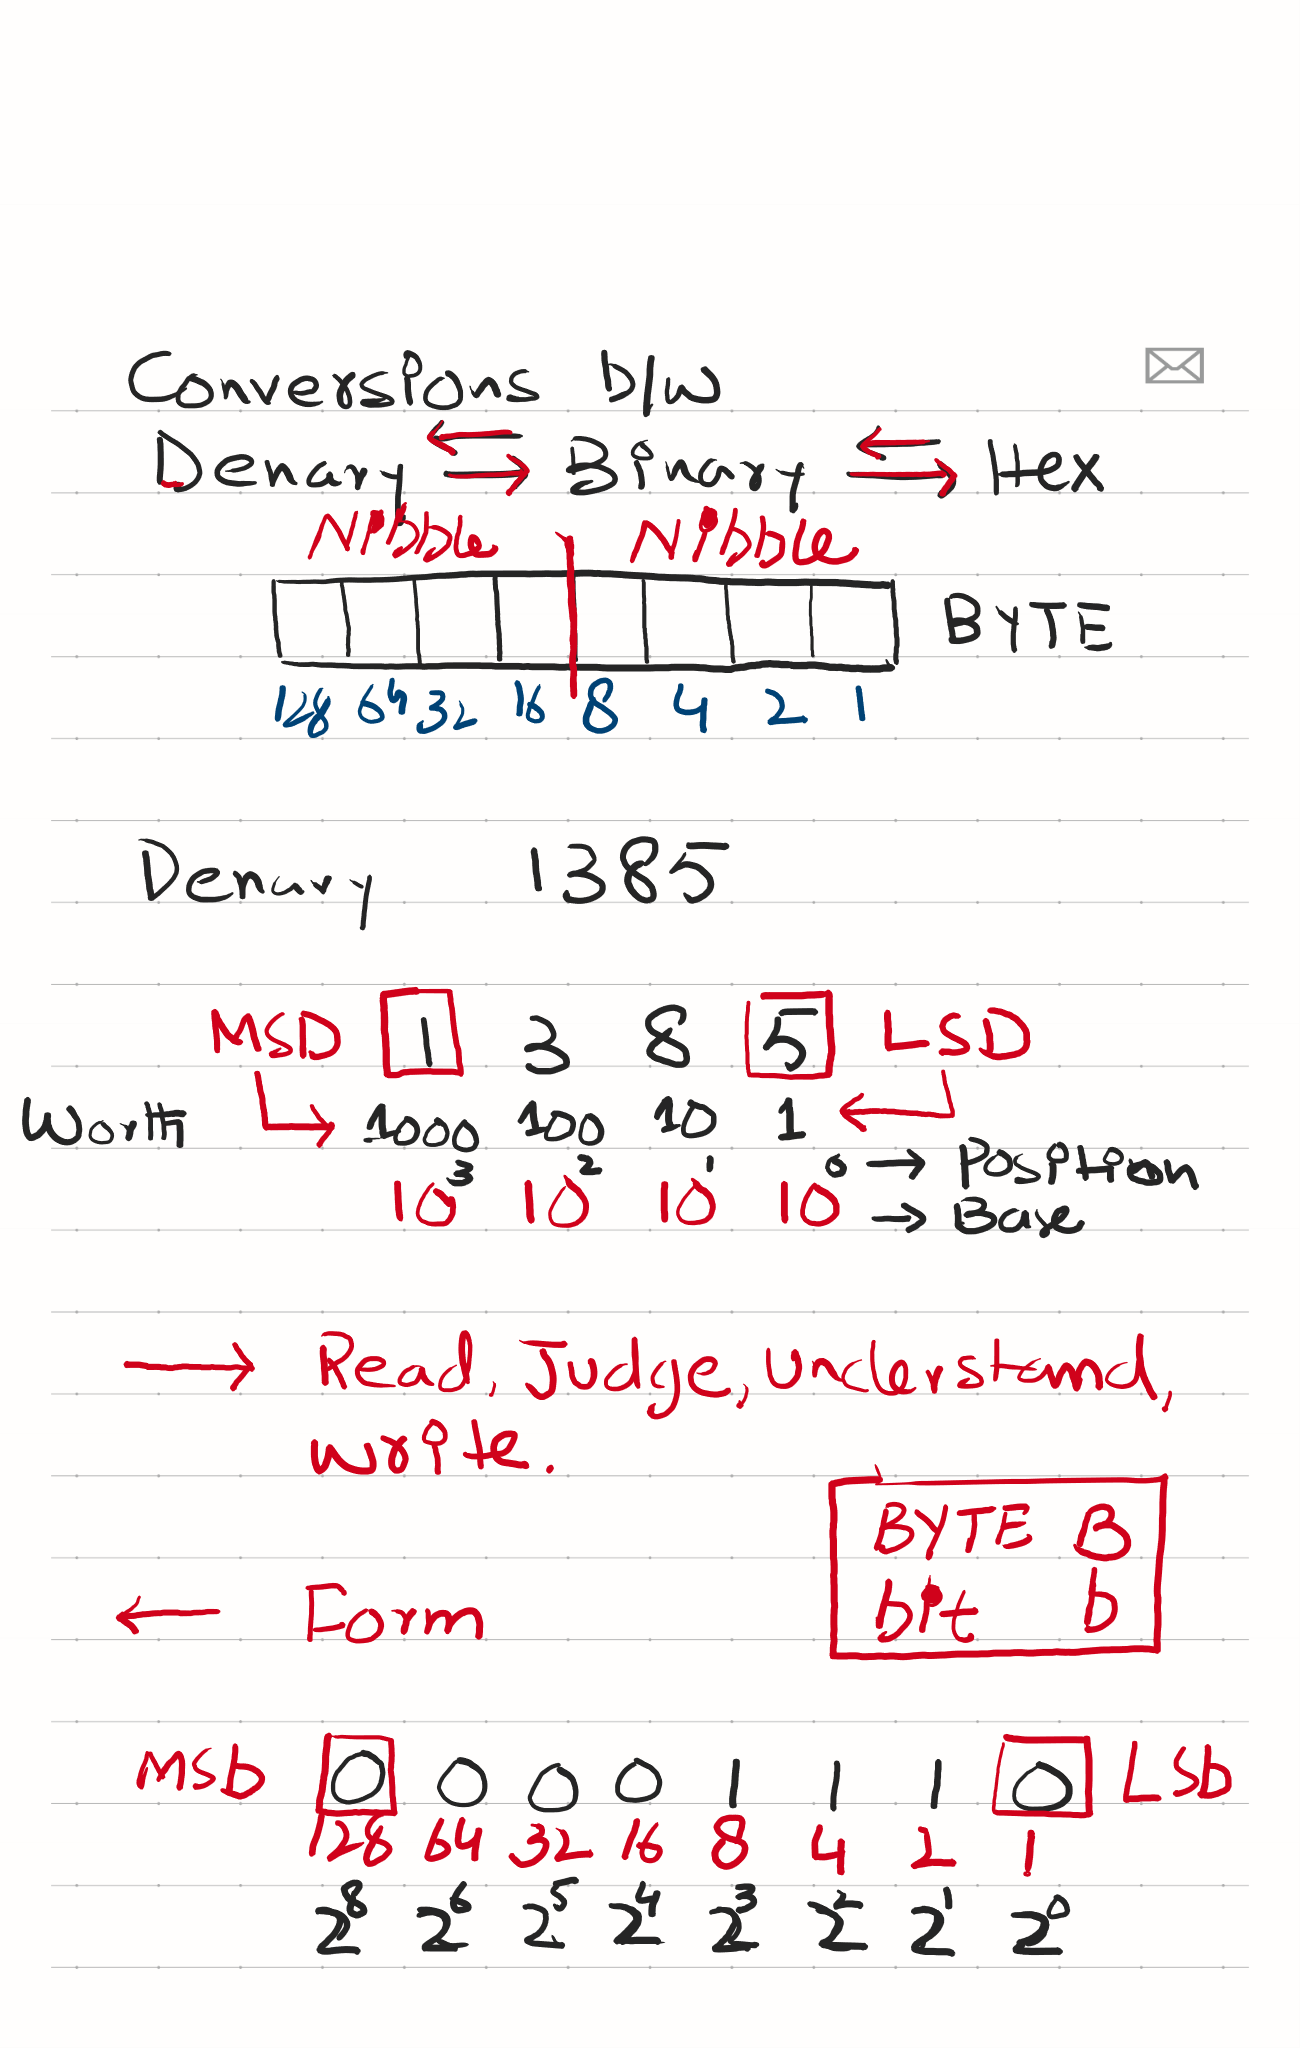 Conversions b/w
Denary ⇄ Binary ⇄ Hex
Nibble Nibble
BYTE
128 64 32 16 8 4 2 1
Denary 1385
MSD 1 3 8 5 LSD
Worth → 1000 100 10 1 ←
10³ 10² 10¹ 10⁰ → Position
→ Base
→ Read, Judge, understand,
write.
BYTE B
bit b
← Form
MSb 0 0 0 0 1 1 1 0 LSb
128 64 32 16 8 4 2 1
2⁸ 2⁶ 2⁵ 2⁴ 2³ 2² 2¹ 2⁰